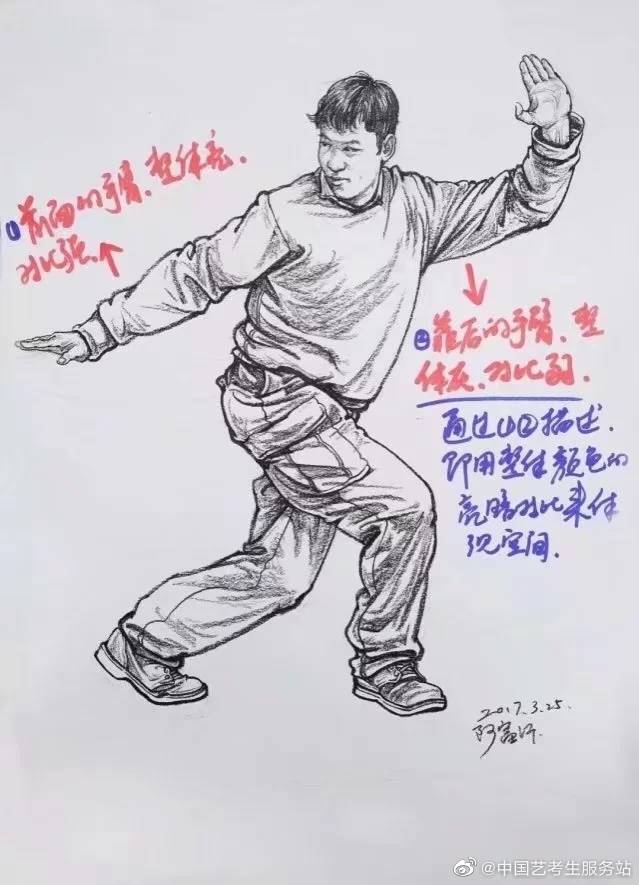 ①前面的手臂、整体亮.
对比强.↑
②靠后的手臂、整
体灰、对比弱.
通过①②描述.
即用整体颜色的
亮暗对比来体
现空间.
2017.3.25.
@中国艺考生服务站